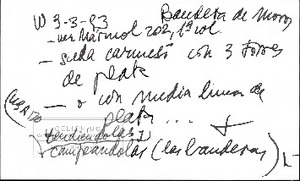 W 3-3-93 Bandera de Moros
- ver Mármol 202, 1º vol.
- seda carmesí con 3 torres
de plata
- o con media luna de
plata ...
tendiéndolas y
campeándolas (las banderas)